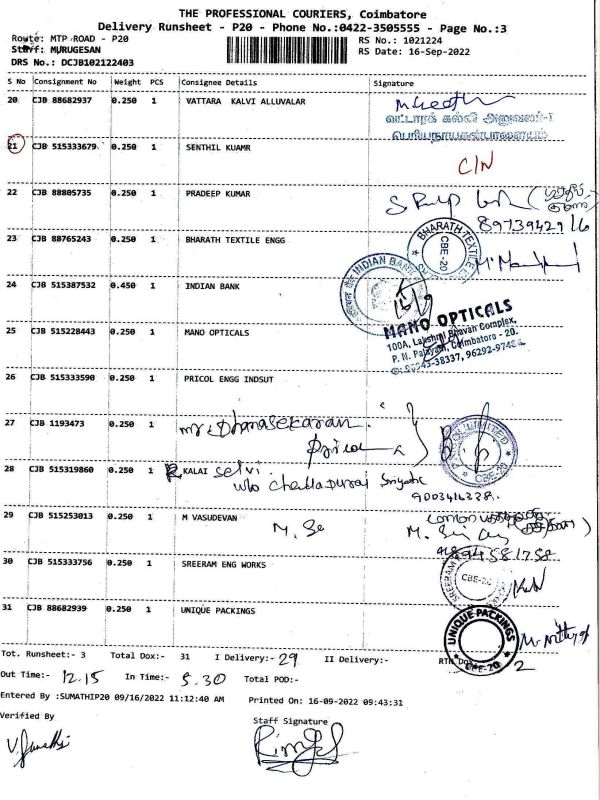 THE PROFESSIONAL COURIERS, Coimbatore
Delivery Runsheet - P20 - Phone No.:0422-3505555 - Page No.:3
Route: MTP ROAD - P20
RS No.: 1021224
Staff: MURUGESAN
RS Date: 16-Sep-2022
DRS No.: DCJB102122403
S No Consignment No Weight PCS Consignee Details Signature
20 CJB 88682937 0.250 1 VATTARA KALVI ALLUVALAR
வட்டாரக் கல்வி அலுவலர்-1
பெரியநாயக்கன்பாளையம்
21 CJB 515333679 0.250 1 SENTHIL KUAMR C/N
22 CJB 88805735 0.250 1 PRADEEP KUMAR
23 CJB 88765243 0.250 1 BHARATH TEXTILE ENGG
BHARATH TEXTILE
CBE-20
24 CJB 515387532 0.450 1 INDIAN BANK
INDIAN BANK
25 CJB 515228443 0.250 1 MANO OPTICALS
MANO OPTICALS
100A, Lakshmi Bhavan Complex,
P. N. Palayam, Coimbatore - 20.
26 CJB 515333590 0.250 1 PRICOL ENGG INDSUT
27 CJB 1193473 0.250 1 Mr. Dhanasekaran
Pricol
LIMITED
CBE-20
28 CJB 515319860 0.250 1 KALAI selvi
29 CJB 515253013 0.250 1 M VASUDEVAN
30 CJB 515333756 0.250 1 SREERAM ENG WORKS
SREERAM
CBE-20
31 CJB 88682939 0.250 1 UNIQUE PACKINGS
UNIQUE PACKINGS
CBE-20
Tot. Runsheet:- 3 Total Dox:- 31 I Delivery:- 29 II Delivery:- RTN Dox 2
Out Time:- 12.15 In Time:- 5.30 Total POD:-
Entered By :SUMATHIP20 09/16/2022 11:12:40 AM Printed On: 16-09-2022 09:43:31
Verified By Staff Signature